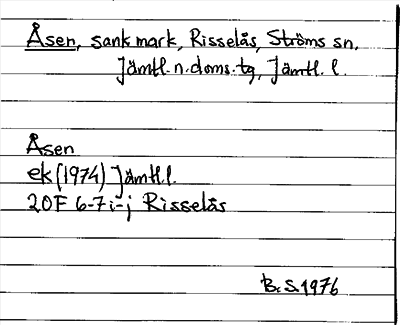 Åsen, sank mark, Risselås, Ströms sn.
Jämtl. n. doms. tg, Jämtl. l.
Åsen
ek (1974) Jämtl l.
20F 6-7 i-j Risselås
B. S. 1976